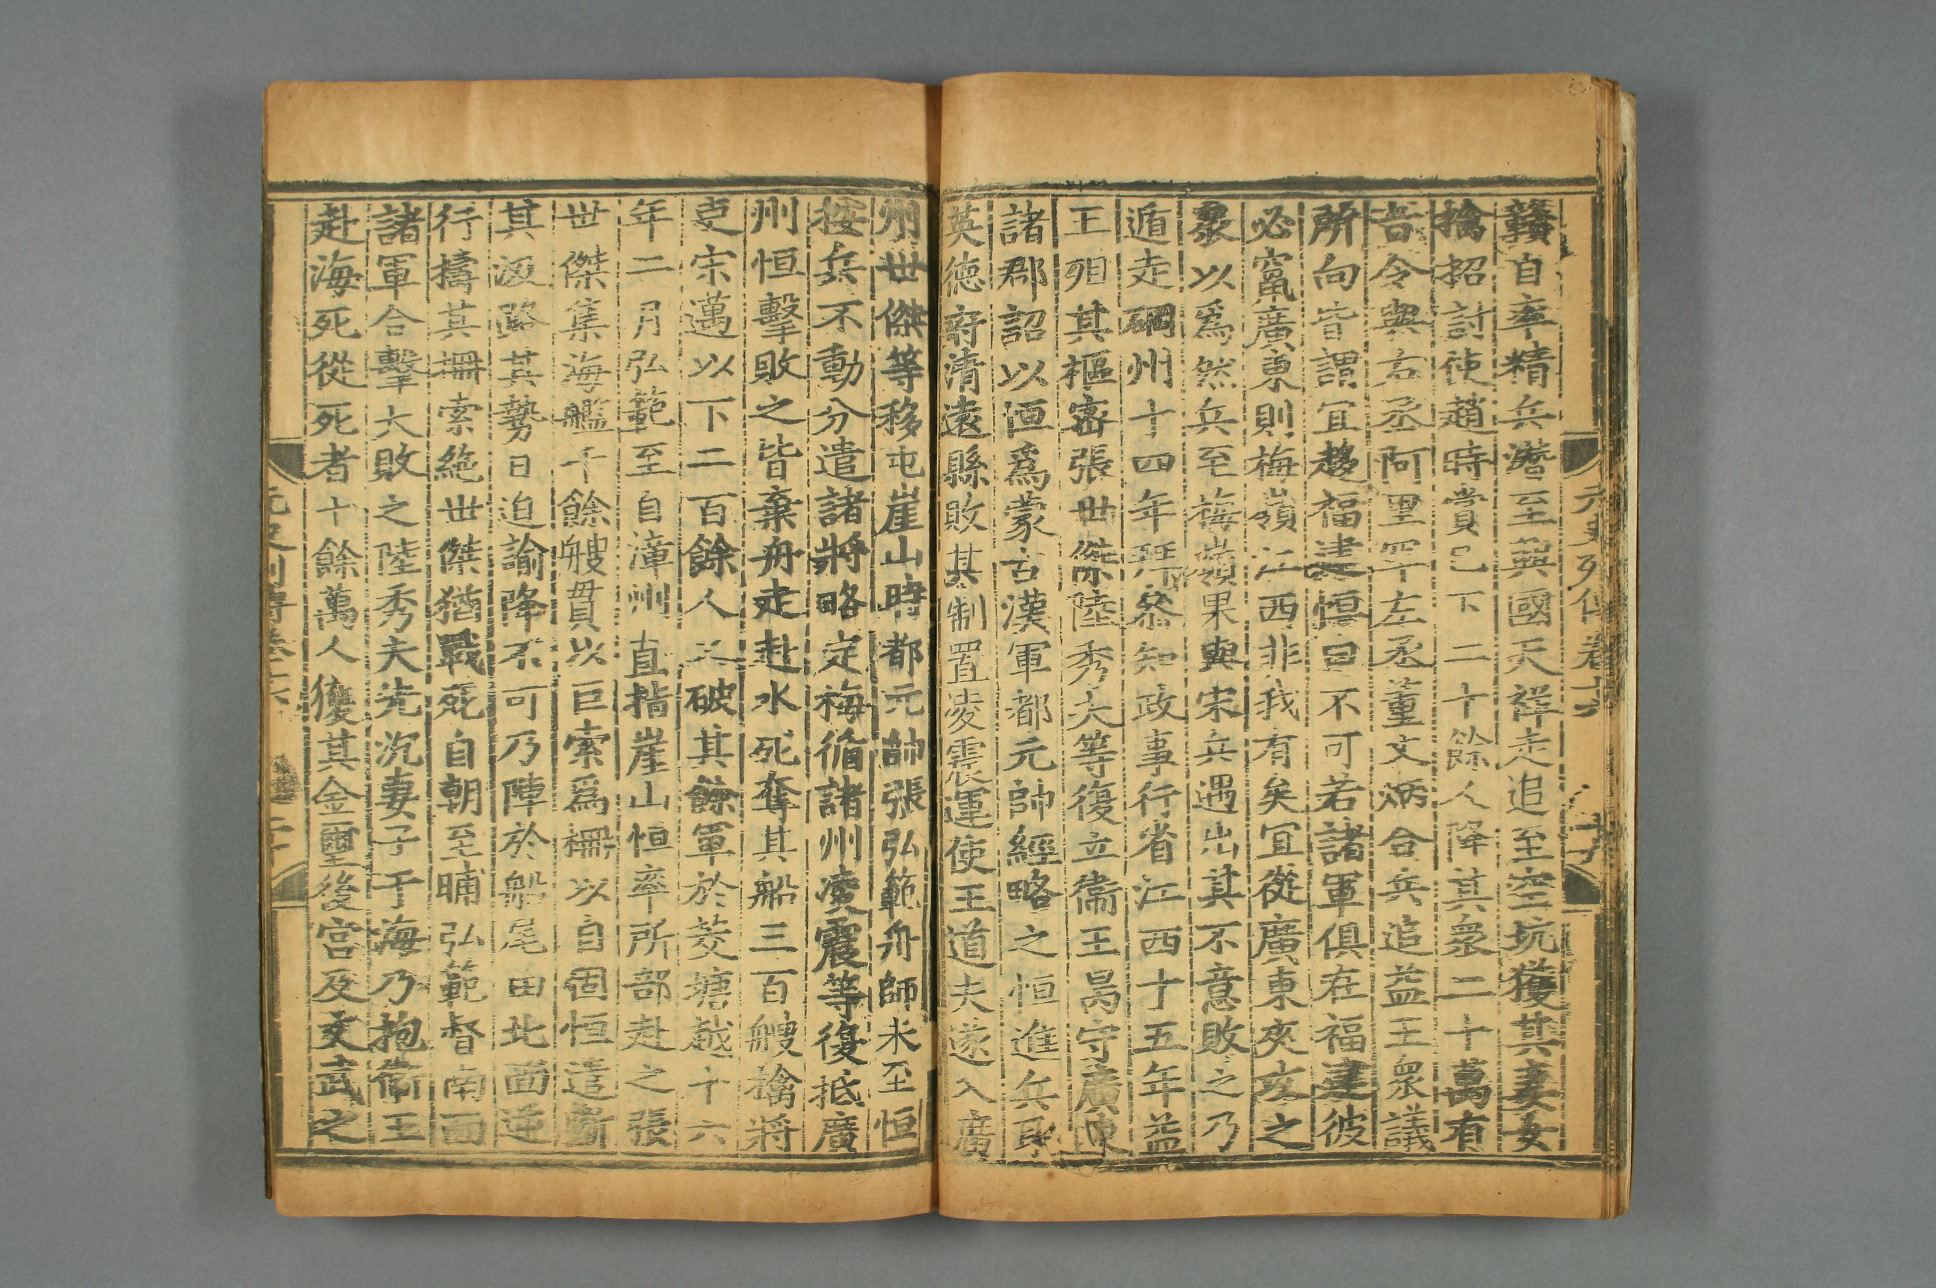 贛自率精兵潛至興國天祥走追至空坑獲其妻女
擒招討使趙時賞已下二十餘人降其衆二十萬有
旨令與右丞阿里罕左丞董文炳合兵追益王衆議
所向皆謂宜趍福建恒曰不可若諸軍俱在福建彼
必竄廣東則梅嶺江西非我有矣宜從廣東夾攻之
衆以爲然兵至梅嶺果與宋兵遇出其不意敗之乃
遁走碙州十四年拜叅知政事行省江西十五年益
王殂其樞密張世傑陸秀夫等復立衛王昺守廣東
諸郡詔以恒爲蒙古漢軍都元帥經略之恒進兵取
英德府清遠縣敗其制置凌震運使王道夫遂入廣
州世傑等移屯崖山時都元帥張弘範舟師未至恒
按兵不動分遣諸將略定梅循諸州凌震等復抵廣
州恒擊敗之皆棄舟走赴水死奪其船三百艘擒將
吏宋邁以下二百餘人又破其餘軍於茭塘越十六
年二月弘範至自漳州直指崖山恒率所部赴之張
世傑集海艦千餘艘貫以巨索爲柵以自固恒遣斷
其汲路其勢日迫諭降不可乃陣於船尾由北面逆
行擣其柵索絶世傑猶戰死自朝至晡弘範督南面
諸軍合擊大敗之陸秀夫先沉妻子于海乃抱衛王
赴海死從死者十餘萬人獲其金璽後宮及文武之
元史列傳卷十六